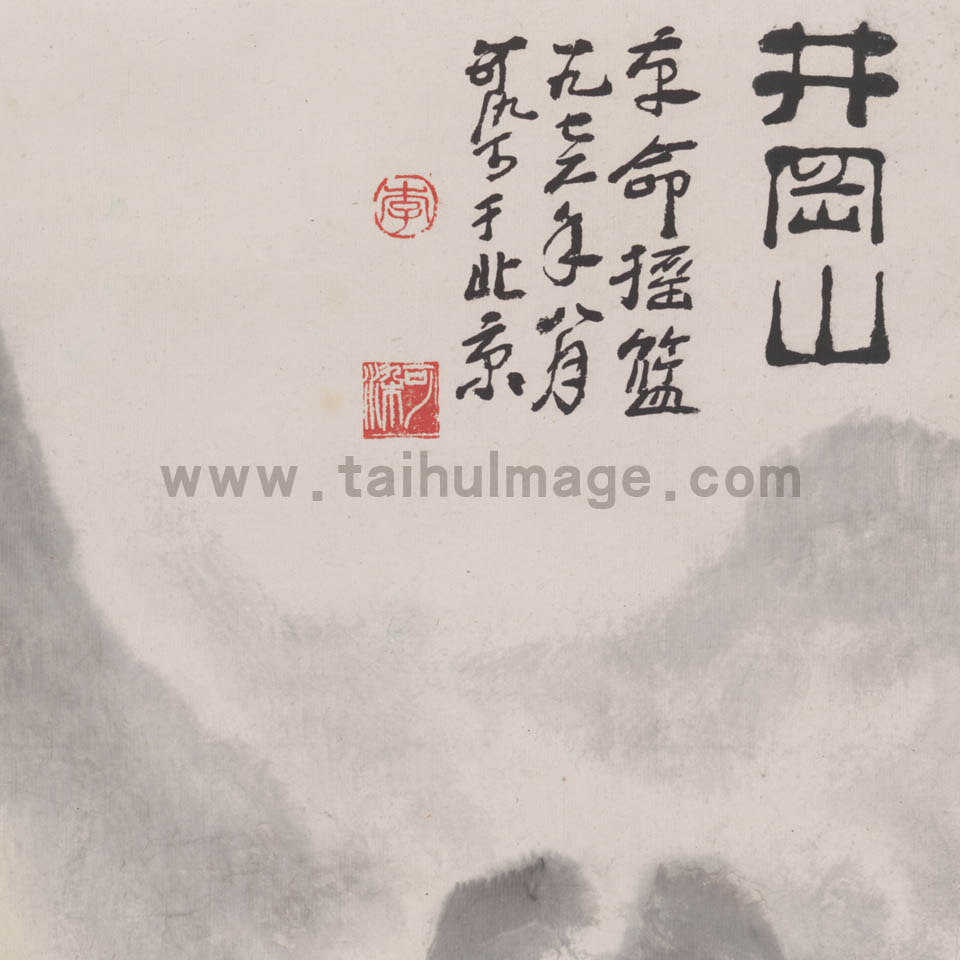 井岡山
革命摇篮
一九七六年八月
可染写于北京
李
可染
www.taihuImage.com